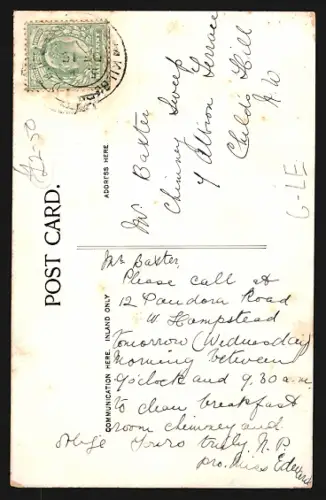 POST CARD.
ADDRESS HERE.
COMMUNICATION HERE. INLAND ONLY
KILBURN
£2-50
G-LE
Mr Baxter
Chimney Sweep
7 Albion Terrace
Childs Hill
N.W
Mr Baxter,
Please call at
12 Pandora Road
W Hampstead
tomorrow (Wednesday)
morning between
9 o'clock and 9.30 a.m.
to clean breakfast
room chimney and
oblige Yours truly, N.P.
pro. Miss